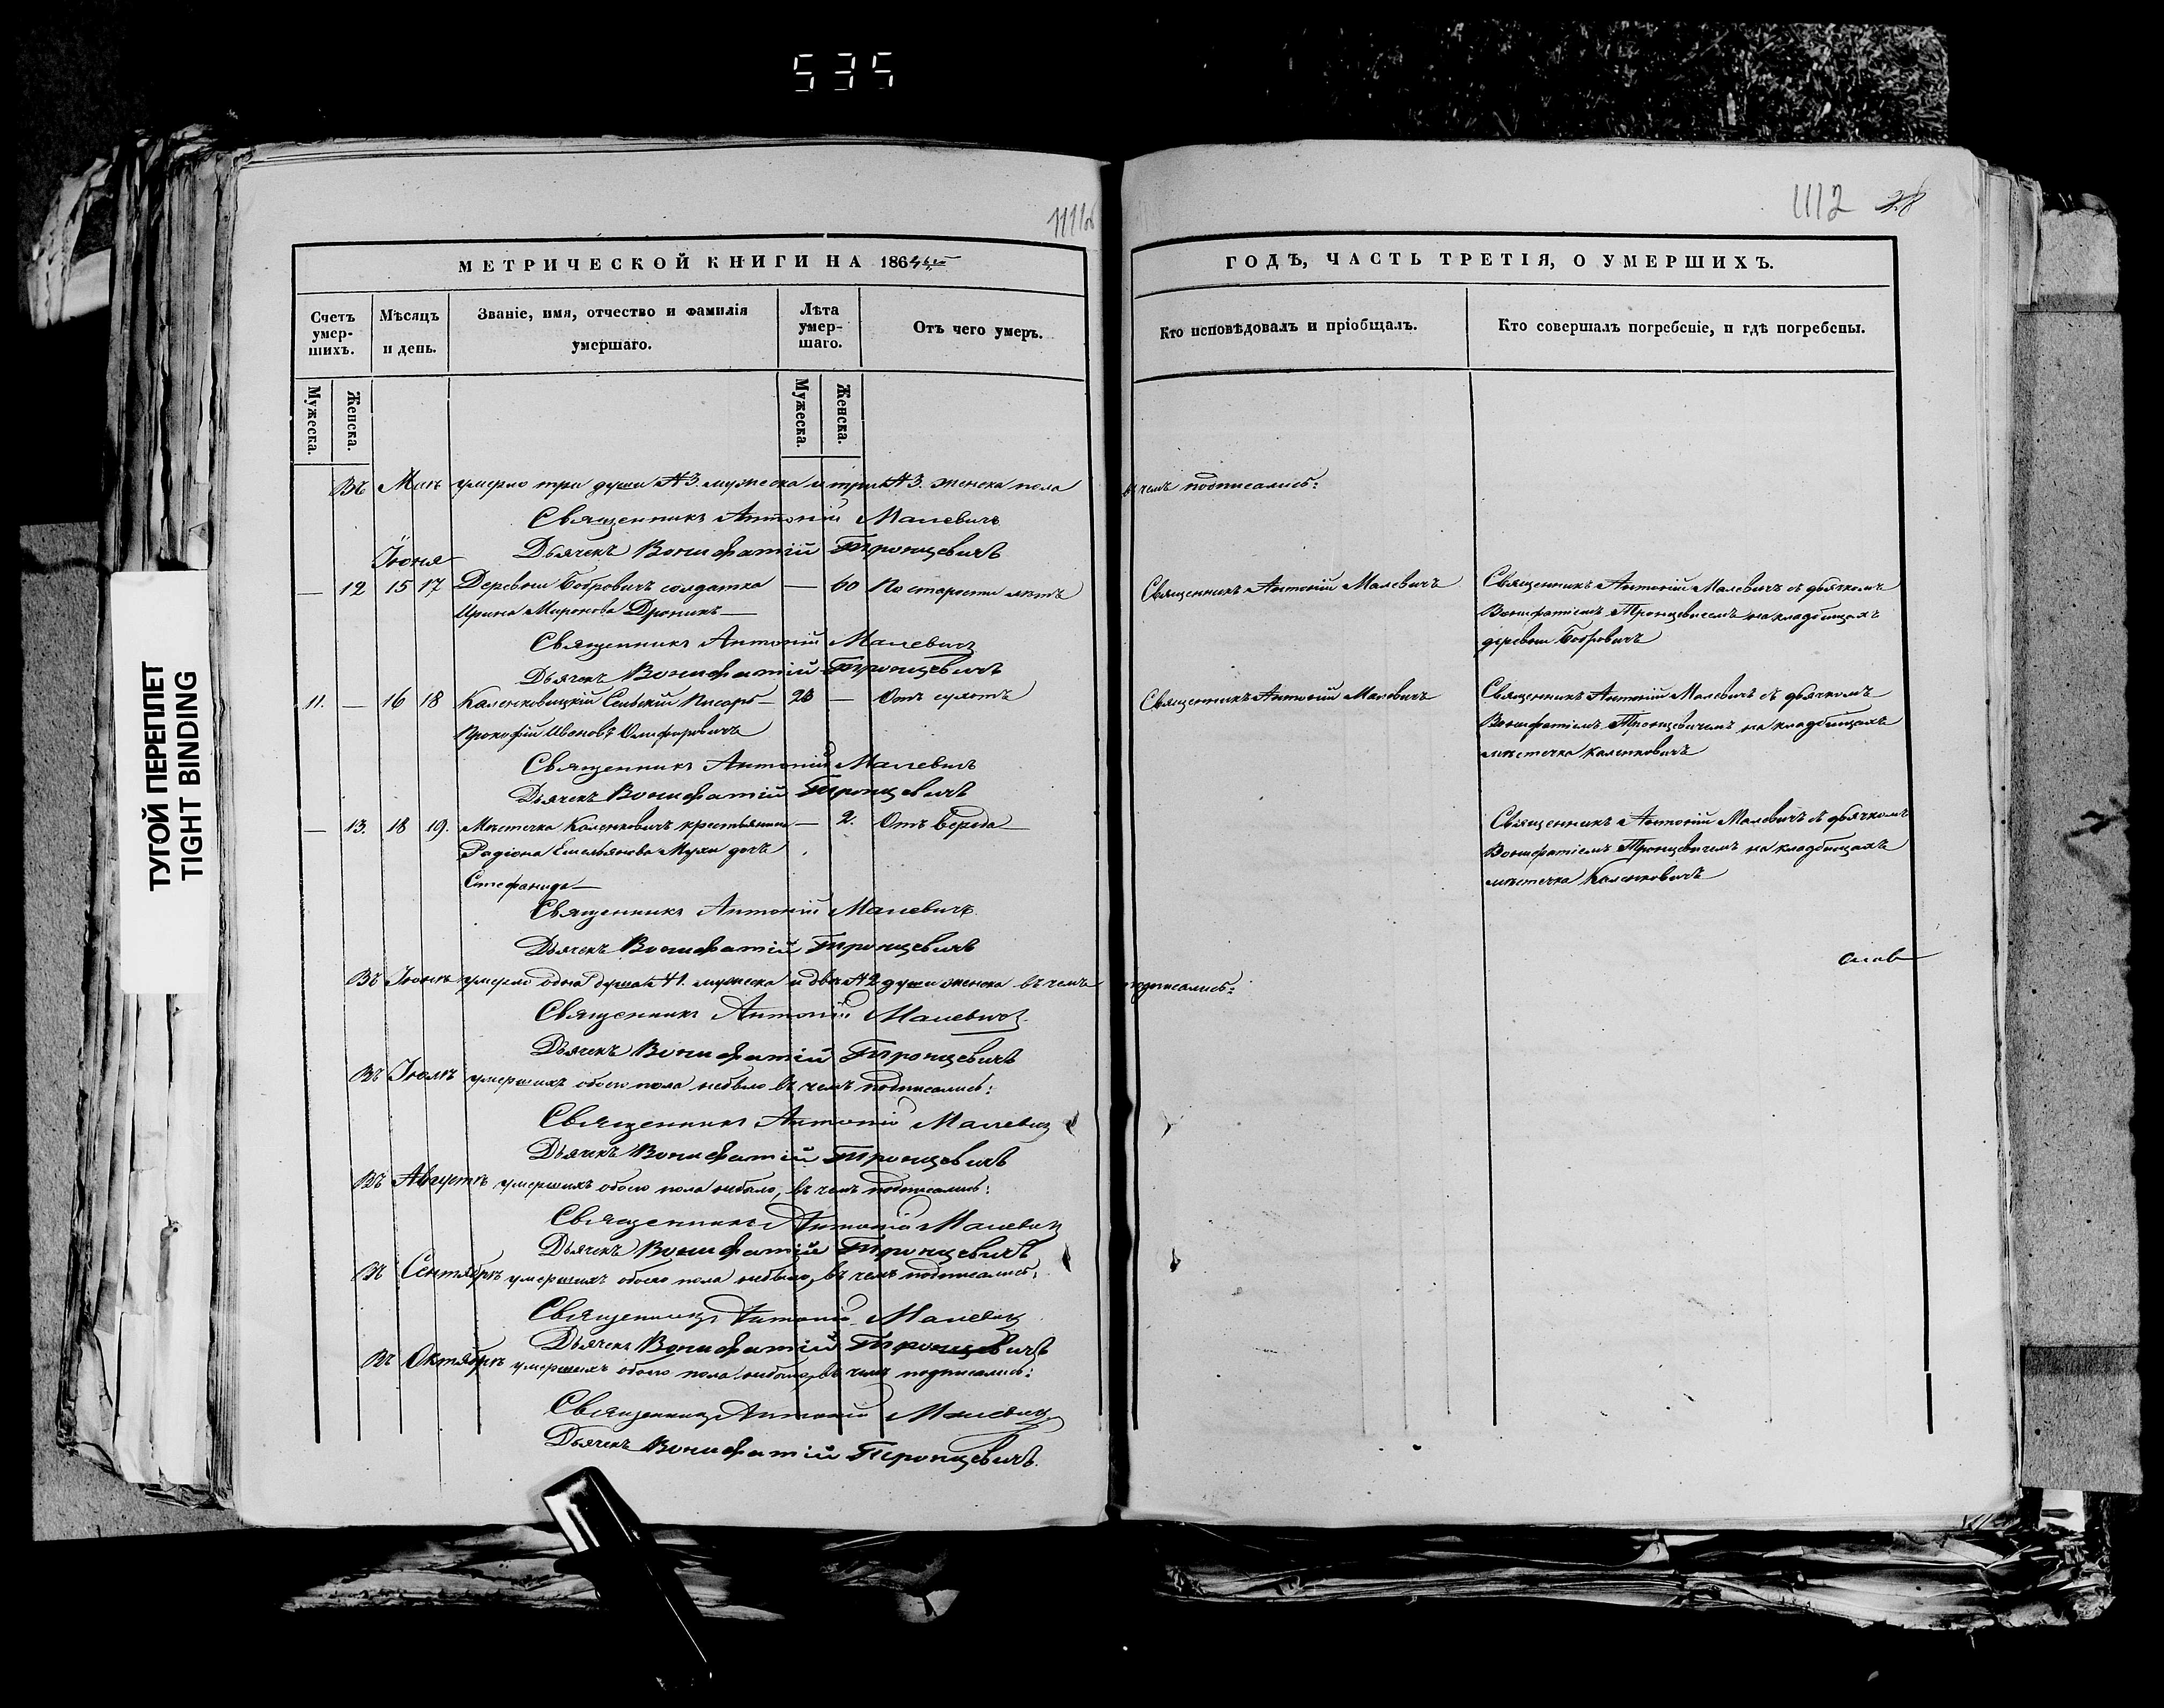 535
1111об
1112 28
МЕТРИЧЕСКОЙ КНИГИ НА 1864й
ГОДЪ, ЧАСТЬ ТРЕТІЯ, О УМЕРШИХЪ.
Счетъ умер-шихъ.
Мѣсяцъ и день.
Званіе, имя, отчество и фамилія умершаго.
Лѣта умер-шаго.
Отъ чего умеръ.
Кто исповѣдовалъ и пріобщалъ.
Кто совершалъ погребеніе, и гдѣ погребены.
Мужеска.
Женска.
Мужеска.
Женска.
Въ Маѣ умерло три души №3. мужеска и три №3. женска пола въ чемъ подписались:
Священникъ Антоній Малевичъ
Дьячекъ Вонифатій Тронцевичъ
Іюня
— 12 15 17 Деревни Бобровичъ солдатка — 60 По старости лѣтъ Священникъ Антоній Малевичъ Священникъ Антоній Малевичъ съ дьячкомъ
Ирина Миронова Дроникъ — Вонифатіемъ Тронцевичемъ на кладбищахъ
деревни Бобровичъ
Священникъ Антоній Малевичъ
Дьячекъ Вонифатій Тронцевичъ
11. — 16 18 Каленковицкій Сельскій Писарь — 23 — Отъ сухотъ Священникъ Антоній Малевичъ Священникъ Антоній Малевичъ съ дьячкомъ
Прокофій Ивановъ Олифировичъ Вонифатіемъ Тронцевичемъ на кладбищахъ
мѣстечка Каленковичъ
Священникъ Антоній Малевичъ
Дьячекъ Вонифатій Тронцевичъ
— 13. 18 19. Мѣстечка Каленковичъ крестьянина — 2. Отъ вереда — Священникъ Антоній Малевичъ съ дьячкомъ
Радіона Емельянова Мухи дочь Вонифатіемъ Тронцевичемъ на кладбищахъ
Стефанида — мѣстечка Каленковичъ
Священникъ Антоній Малевичъ
Дьячекъ Вонифатій Тронцевичъ
Въ Іюнѣ умерло одна душа №1. мужеска и двѣ №2 души женска въ чемъ подписались:
Священникъ Антоній Малевичъ
Дьячекъ Вонифатій Тронцевичъ
Въ Іюлѣ умершихъ обоего пола небыло въ чемъ подписались:
Священникъ Антоній Малевичъ
Дьячекъ Вонифатій Тронцевичъ
Въ Августѣ умершихъ обоего пола небыло, въ чемъ подписались:
Священникъ Антоній Малевичъ
Дьячекъ Вонифатій Тронцевичъ
Въ Сентябрѣ умершихъ обоего пола небыло, въ чемъ подписались:
Священникъ Антоній Малевичъ
Дьячекъ Вонифатій Тронцевичъ
Въ Октябрѣ умершихъ обоего пола небыло, въ чемъ подписались:
Священникъ Антоній Малевичъ
Дьячекъ Вонифатій Тронцевичъ.
ТУГОЙ ПЕРЕПЛЕТ
TIGHT BINDING